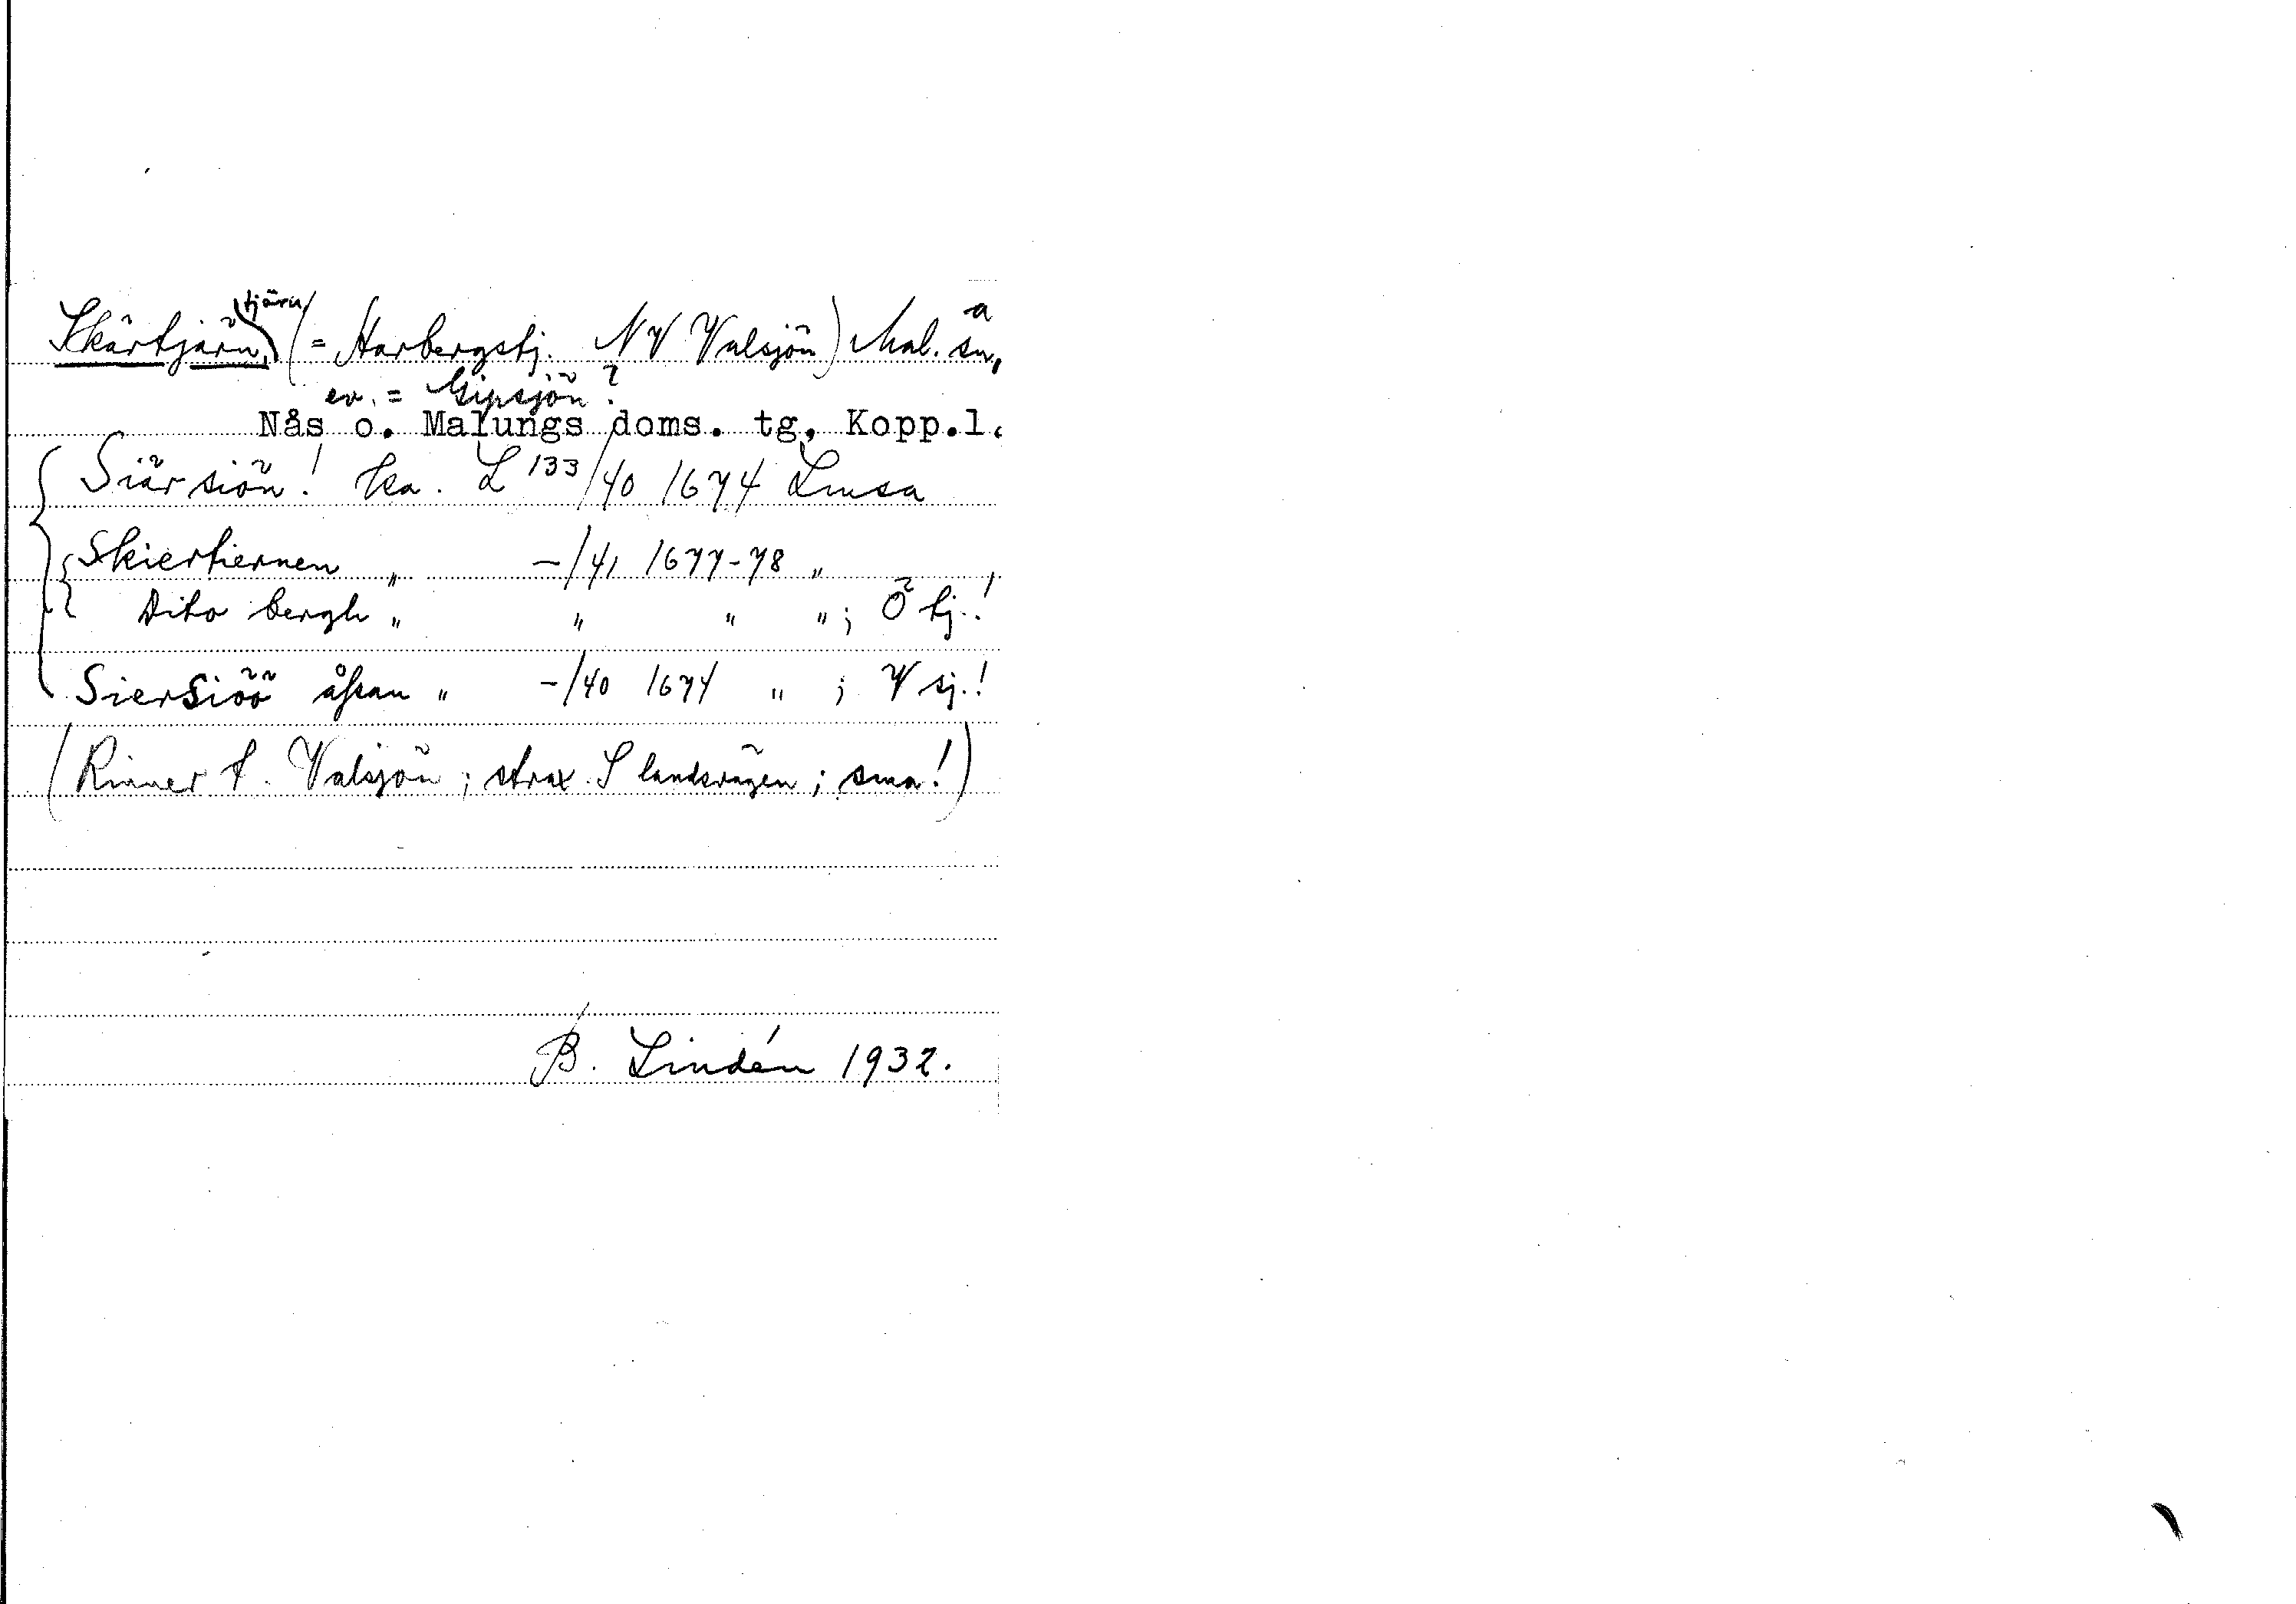 Skärtjärn, tjärn (= Harbergstj. NV Valsjön) Mal. sn, a
ev. = Gipsjön?
Nås o. Malungs doms. tg, Kopp.l.
Siärsiön! ka. L 133/40 1674 Limsa
Skiertiernen " -/41 1677-78 "
Dito bergh " " " "; Ö tj.!
Siersiöö åssan " -/40 1674 " ; V sj.!
(Rinner t. Valsjön; strax S landsvägen; små!)
B. Lindén 1932.